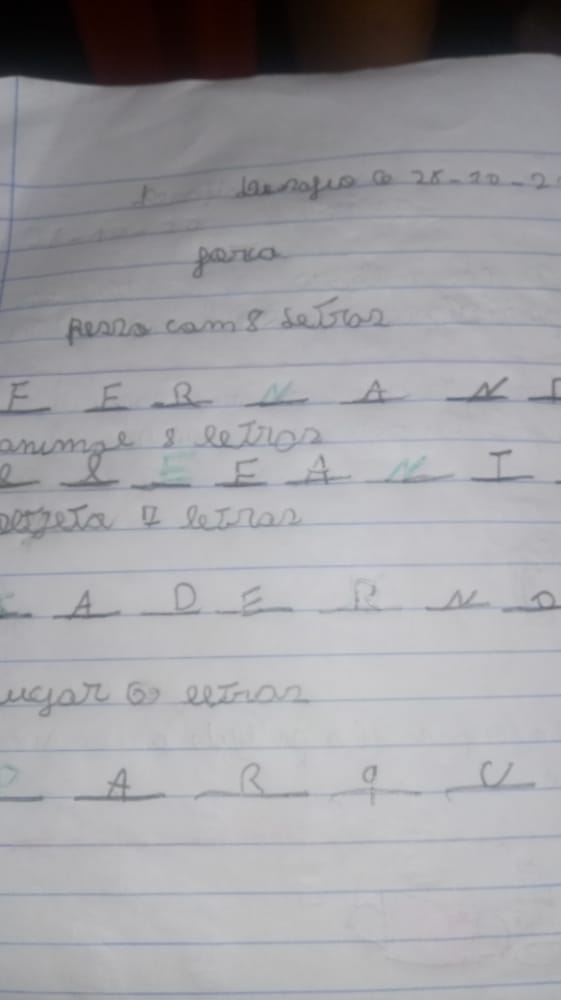 28-10-2
forca
pessoa com 8 letras
F E R N A N
animal 8 letras
e l E F A N T
7 letras
A D E R N O
lugar 6 letras
P A R q U